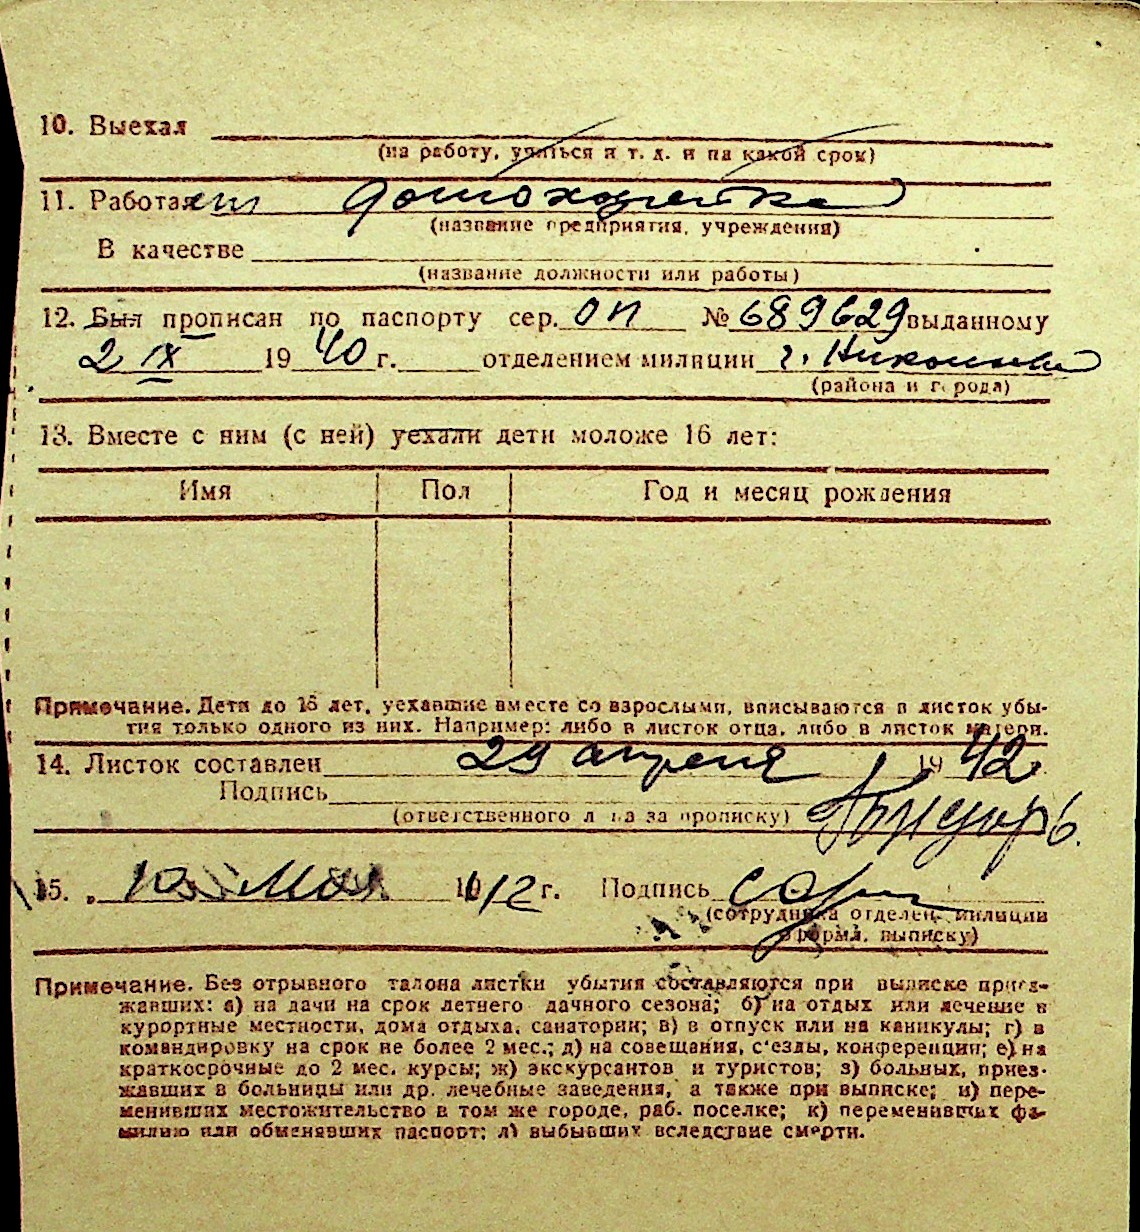 10. Выехал
(на работу, учиться и т. д. и на какой срок)
11. Работает домохозяйка
(название предприятия, учреждения)
В качестве
(название должности или работы)
12. Был прописан по паспорту сер. ОП № 689629 выданному
2 IX 1940 г. отделением милиции г. Николаева
(района и города)
13. Вместе с ним (с ней) уехали дети моложе 16 лет:
Имя Пол Год и месяц рождения
Примечание. Дети до 16 лет, уехавшие вместе со взрослыми, вписываются в листок убы-
тия только одного из них. Например: либо в листок отца, либо в листок матери.
14. Листок составлен 29 апреля 1942
Подпись
(ответственного лица за прописку)
15. „ 10 Мая 1942 г. Подпись
(сотрудника отделен. милиции
оформл. выписку)
Примечание. Без отрывного талона листки убытия составляются при выписке приез-
жавших: а) на дачи на срок летнего дачного сезона; б) на отдых или лечение в
курортные местности, дома отдыха, санатории; в) в отпуск или на каникулы; г) в
командировку на срок не более 2 мес.; д) на совещания, с'езды, конференции; е) на
краткосрочные до 2 мес. курсы; ж) экскурсантов и туристов; з) больных, приез-
жавших в больницы или др. лечебные заведения, а также при выписке; и) пере-
менивших местожительство в том же городе, раб. поселке; к) переменивших фа-
милию или обменявших паспорт; л) выбывших вследствие смерти.